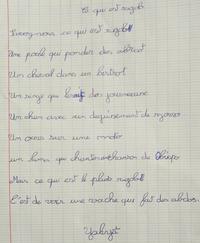 Ce qui est rigolo
Savez-vous ce qui est rigolo
Une poule qui pondre des abricot
Un cheval dans un bistrot
Un singe qui des journeaux
Un chien avec un déguisement de
Un ours sur une moto
un qui chante chanson de
Mais ce qui est le plus rigolo
C'est de voir une vache qui fait des abdos.